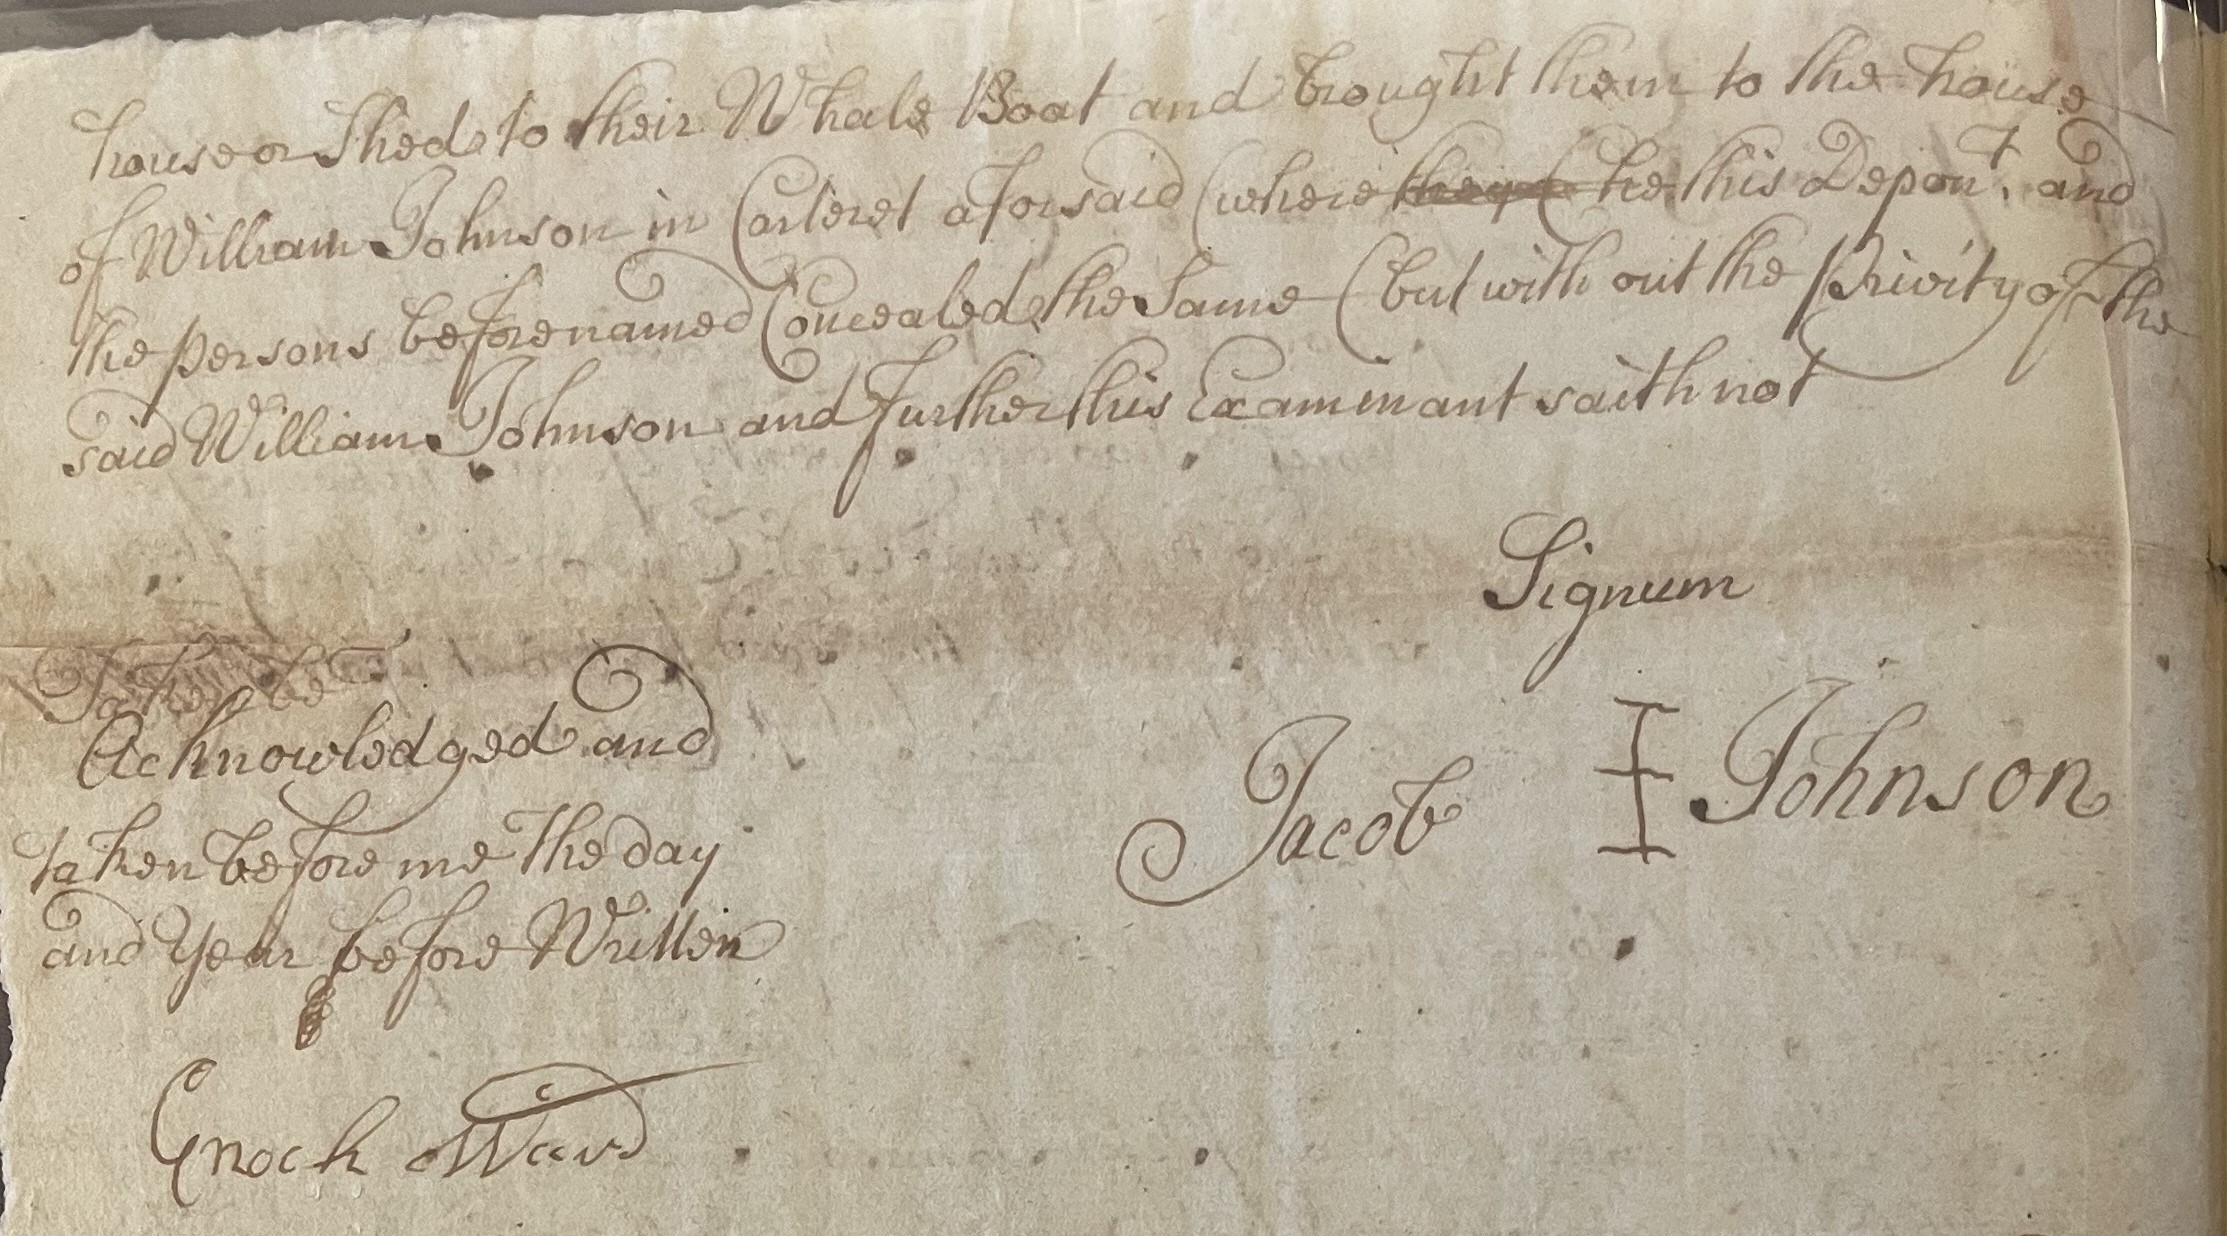 house or Shed to their Whale Boat and brought them to the house
of William Johnson in Carteret aforsaid (where they (he this Depont. and
the persons beforenamed Concealed the Same (but with out the Privity of the
said William Johnson and further this Examinant saith not
Signum
Taken be
Acknowledged and
taken before me the day
and Year before Written
Jacob Johnson
Enoch Ward